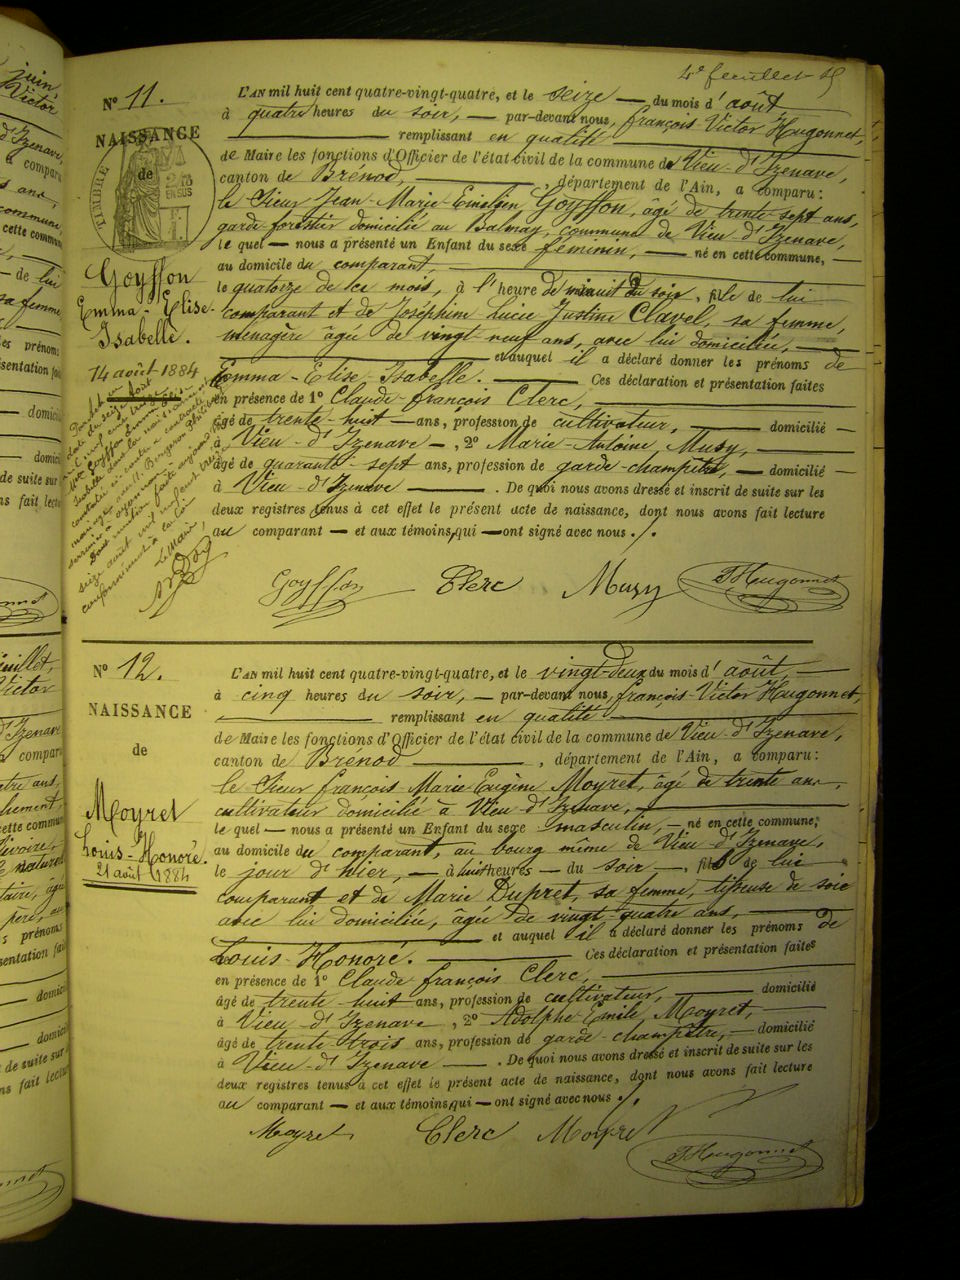 4e feuillet
N° 11.
NAISSANCE
de
TIMBRE
2/10 EN SUS
Goyffon
Emma-Elise-
Isabelle.
14 août 1884
L'AN mil huit cent quatre-vingt-quatre, et le seize du mois d'août
à quatre heures du soir, par-devant nous, françois Victor Hugonnet,
remplissant en qualité
de Maire les fonctions d'Officier de l'état civil de la commune de Vieu-d'Izenave,
canton de Brénod, département de l'Ain, a comparu:
le Sieur Jean-Marie Goyffon, âgé de trente-sept ans,
garde forestier domicilié au Balmay, commune de Vieu-d'Izenave,
le quel nous a présenté un Enfant du sexe féminin, né en cette commune,
au domicile du comparant,
le quatorze de ce mois, à l'heure de minuit du soir, fille de lui
comparant et de Joséphine Lucie Justine Clavel, sa femme,
ménagère âgée de vingt-neuf ans, avec lui domiciliée,
et auquel il a déclaré donner les prénoms de
Emma-Elise-Isabelle. Ces déclaration et présentation faites
en présence de 1° Claude-françois Clerc,
âgé de trente-huit ans, profession de cultivateur, domicilié
à Vieu-d'Izenave, 2° Marie-Antoine Musy,
âgé de quarante-sept ans, profession de garde-champêtre, domicilié
à Vieu-d'Izenave. De quoi nous avons dressé et inscrit de suite sur les
deux registres tenus à cet effet le présent acte de naissance, dont nous avons fait lecture
au comparant et aux témoins, qui ont signé avec nous./.
Goyffon Clerc Musy FHugonnet
N° 12.
NAISSANCE
de
Moyret
Louis-Honoré.
21 août 1884
L'AN mil huit cent quatre-vingt-quatre, et le vingt-deux du mois d'août,
à cinq heures du soir, par-devant nous, françois-Victor Hugonnet,
remplissant en qualité
de Maire les fonctions d'Officier de l'état civil de la commune de Vieu-d'Izenave,
canton de Brénod, département de l'Ain, a comparu:
le Sieur françois-Marie Eugène Moyret, âgé de trente ans,
cultivateur domicilié à Vieu d'Izenave,
le quel nous a présenté un Enfant du sexe masculin, né en cette commune,
au domicile du comparant, au bourg même de Vieu d'Izenave,
le jour d'hier, à huit heures du soir, fils de lui
comparant et de Marie Dupret, sa femme, tisseuse de soie
avec lui domiciliée, âgée de vingt-quatre ans,
et auquel il a déclaré donner les prénoms de
Louis-Honoré. Ces déclaration et présentation faites
en présence de 1° Claude françois Clerc,
âgé de trente-huit ans, profession de cultivateur, domicilié
à Vieu-d'Izenave, 2° Adolphe Emile Moyret,
âgé de trente-trois ans, profession de garde-champêtre, domicilié
à Vieu-d'Izenave. De quoi nous avons dressé et inscrit de suite sur les
deux registres tenus à cet effet le présent acte de naissance, dont nous avons fait lecture
au comparant et aux témoins, qui ont signé avec nous./.
Moyret Clerc Moyret
FHugonnet